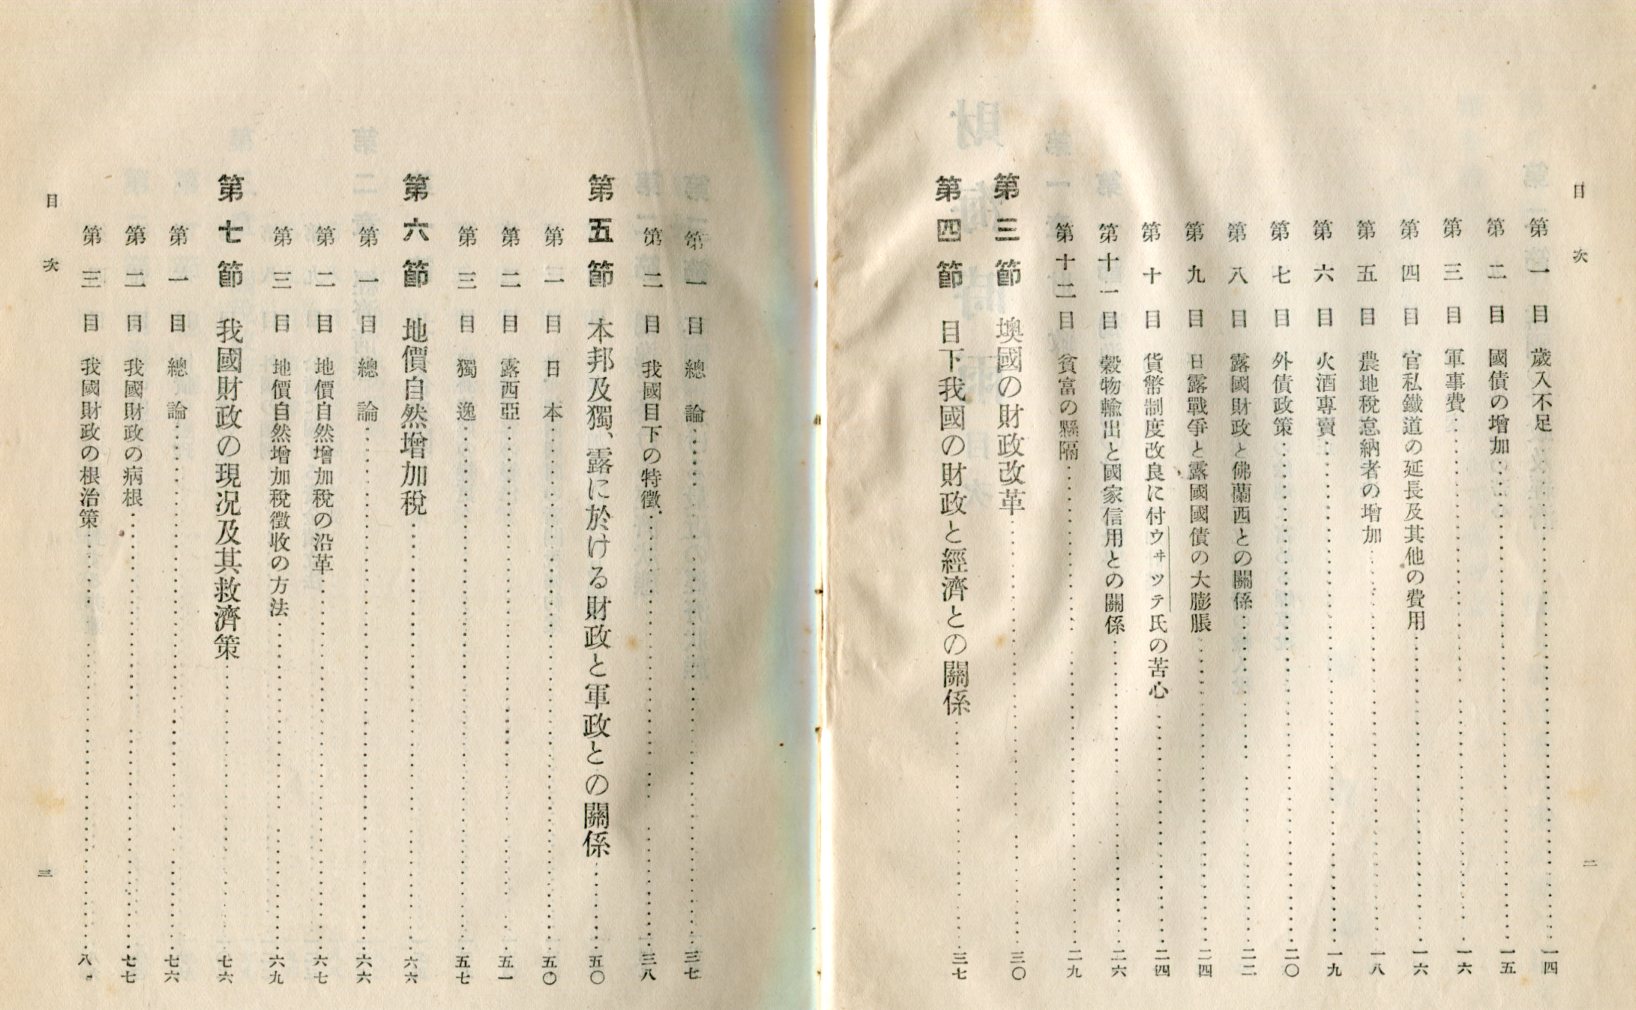 目次
第一目 歳入不足…一四
第二目 國債の增加…一五
第三目 軍事費…一六
第四目 官私鐵道の延長及其他の費用…一六
第五目 農地稅怠納者の增加…一八
第六目 火酒專賣…一九
第七目 外債政策…二〇
第八目 露國財政と佛蘭西との關係…二二
第九目 日露戰爭と露國國債の大膨脹…二四
第十目 貨幣制度改良に付ウヰツテ氏の苦心…二四
第十一目 穀物輸出と國家信用との關係…二六
第十二目 貧富の懸隔…二九
第三節 墺國の財政改革…三〇
第四節 目下我國の財政と經濟との關係…三七
二
第一目 總論…三七
第二目 我國目下の特徵…三八
第五節 本邦及獨、露に於ける財政と軍政との關係…五〇
第一目 日本…五〇
第二目 露西亞…五一
第三目 獨逸…五七
第六節 地價自然增加稅…六六
第一目 總論…六六
第二目 地價自然增加稅の沿革…六七
第三目 地價自然增加稅徵收の方法…六九
第七節 我國財政の現况及其救濟策…七六
第一目 總論…七六
第二目 我國財政の病根…七七
第三目 我國財政の根治策…八
目次
三